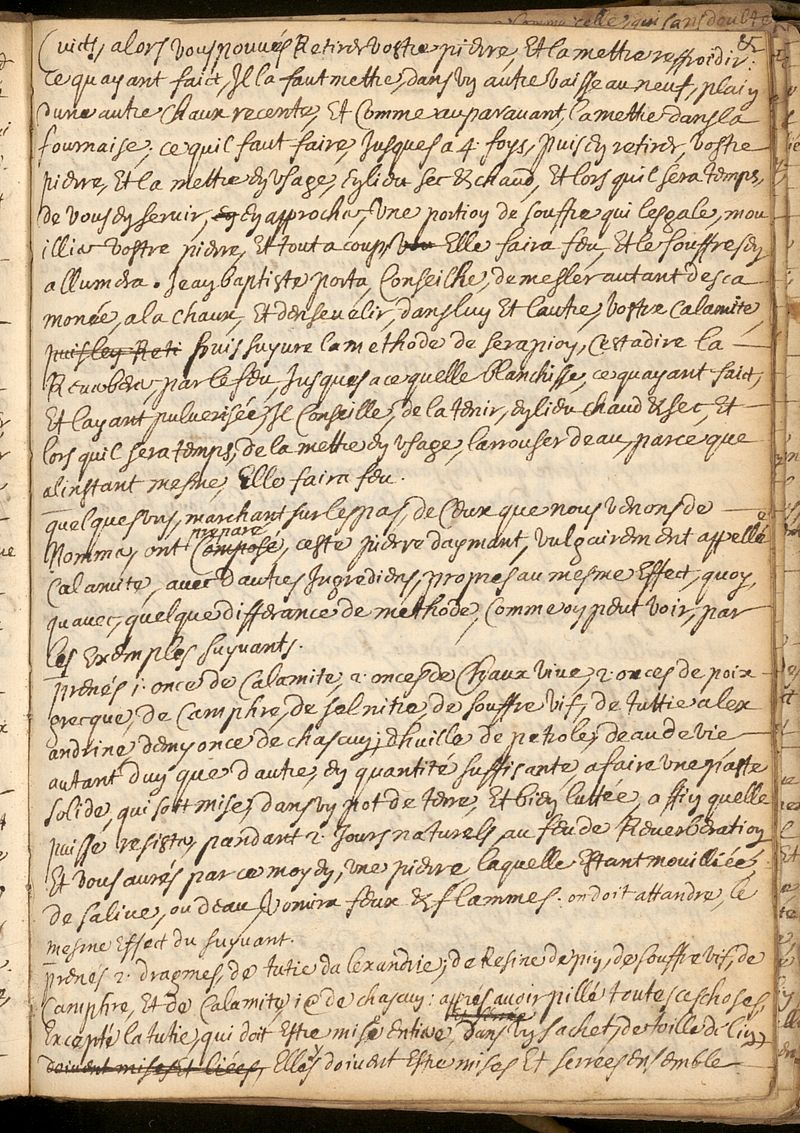 Cuict, alors vous pouués Retirer vostre pierre, Et la mettre reffroidir:
Ce quayant faict, Il la faut mettre, dans vn autre vaisseau neuf, plain
dune autre Chaux recente, Et Comme auparauant, la mettre dans la
fournaise, ce quil faut faire, Jusques a 4. foys, puis En retirer, vostre
pierre, Et la mettre En vsage, En lieu sec & chaud, et lors quil sera temps,
de vous En seruir, En approcher, vne portion de souffre qui lesgale, mou
iller vostre pierre, Et tout a coup, Elle faira feu, Et le souffre sen
allumera. Jean baptiste porta, Conseilhe, de mesler autant desca
monée, a la Chaux, Et denseuelir, dans luy Et lautre, vostre Calamite,
puis les Reti puis suyure la methode de serapion, Cest adire la
Reuerberer, par le feu, Jusques a ce quelle blanchisse, ce quayant faict,
Et layant puluerisée, Il Conseille, de la tenir, En lieu chaud & sec, Et
lors quil sera temps, de la mettre En vsage, larrouser deau, parce que
alinstant mesme, Elle faira feu.
quelques vns, marchant sur les pas, de Ceux que nous venons de
Nommer, ont prepare Compose, ceste pierre daymant, vulgairement appellé
Calamite, auec dautres Ingrediens, propres au mesme Effect, quoy
quauec, quelque differance de methode, Comme on peut voir, par
les Exemples suyuants.
prenés 1. once de Calamite, 2. onces de Chaux viue, 2. onces de poix
grecque, de Camphre, de salnitre, de souffre vif, de tuttie alex
andrine demy once de chascun, dhuille de petrole, deau de vie
autant dun que dautre, En quantité suffisante a faire vne paste
solide, qui soit mise, dans vn pot de terre, Et bien luttée, affin quelle
puisse resister, pandant 2. Jours naturels au feu de Reuerberation
Et vous aurés par ce moyen, vne pierre laquelle Estant mouilliée
de saliue, ou deau, vomira feux & flammes. on doit attandre, le
mesme Effect du suyuant.
prenés 2. dragmes, de tutie dalexandrie, de Resine de pin, de souffre vif, de
Camphre, Et de Calamite, de chascun: apres auoir pillé toutes ces choses,
Excepté la tutie, qui doit Estre mise entiere, dans vn sachet, de toille de lin,
doiuent mises Et liees, Elles doiuent Estre mises Et serrees ensemble